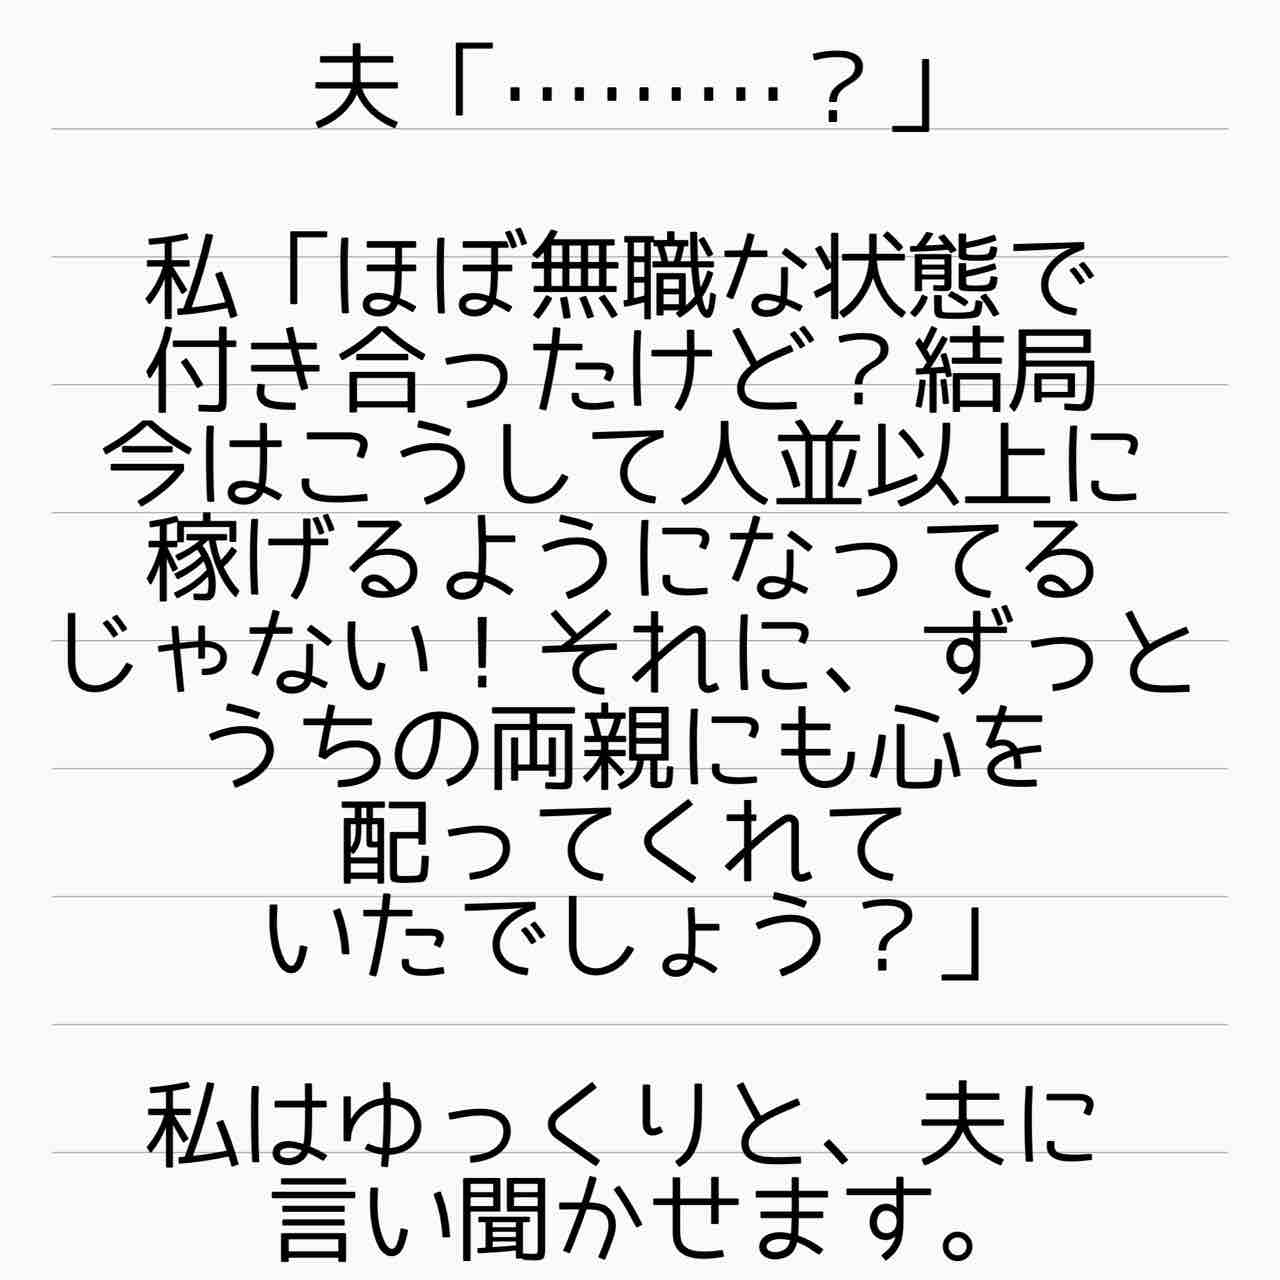 夫「………？」
私「ほぼ無職な状態で
付き合ったけど？結局
今はこうして人並以上に
稼げるようになってる
じゃない！それに、ずっと
うちの両親にも心を
配ってくれて
いたでしょう？」
私はゆっくりと、夫に
言い聞かせます。